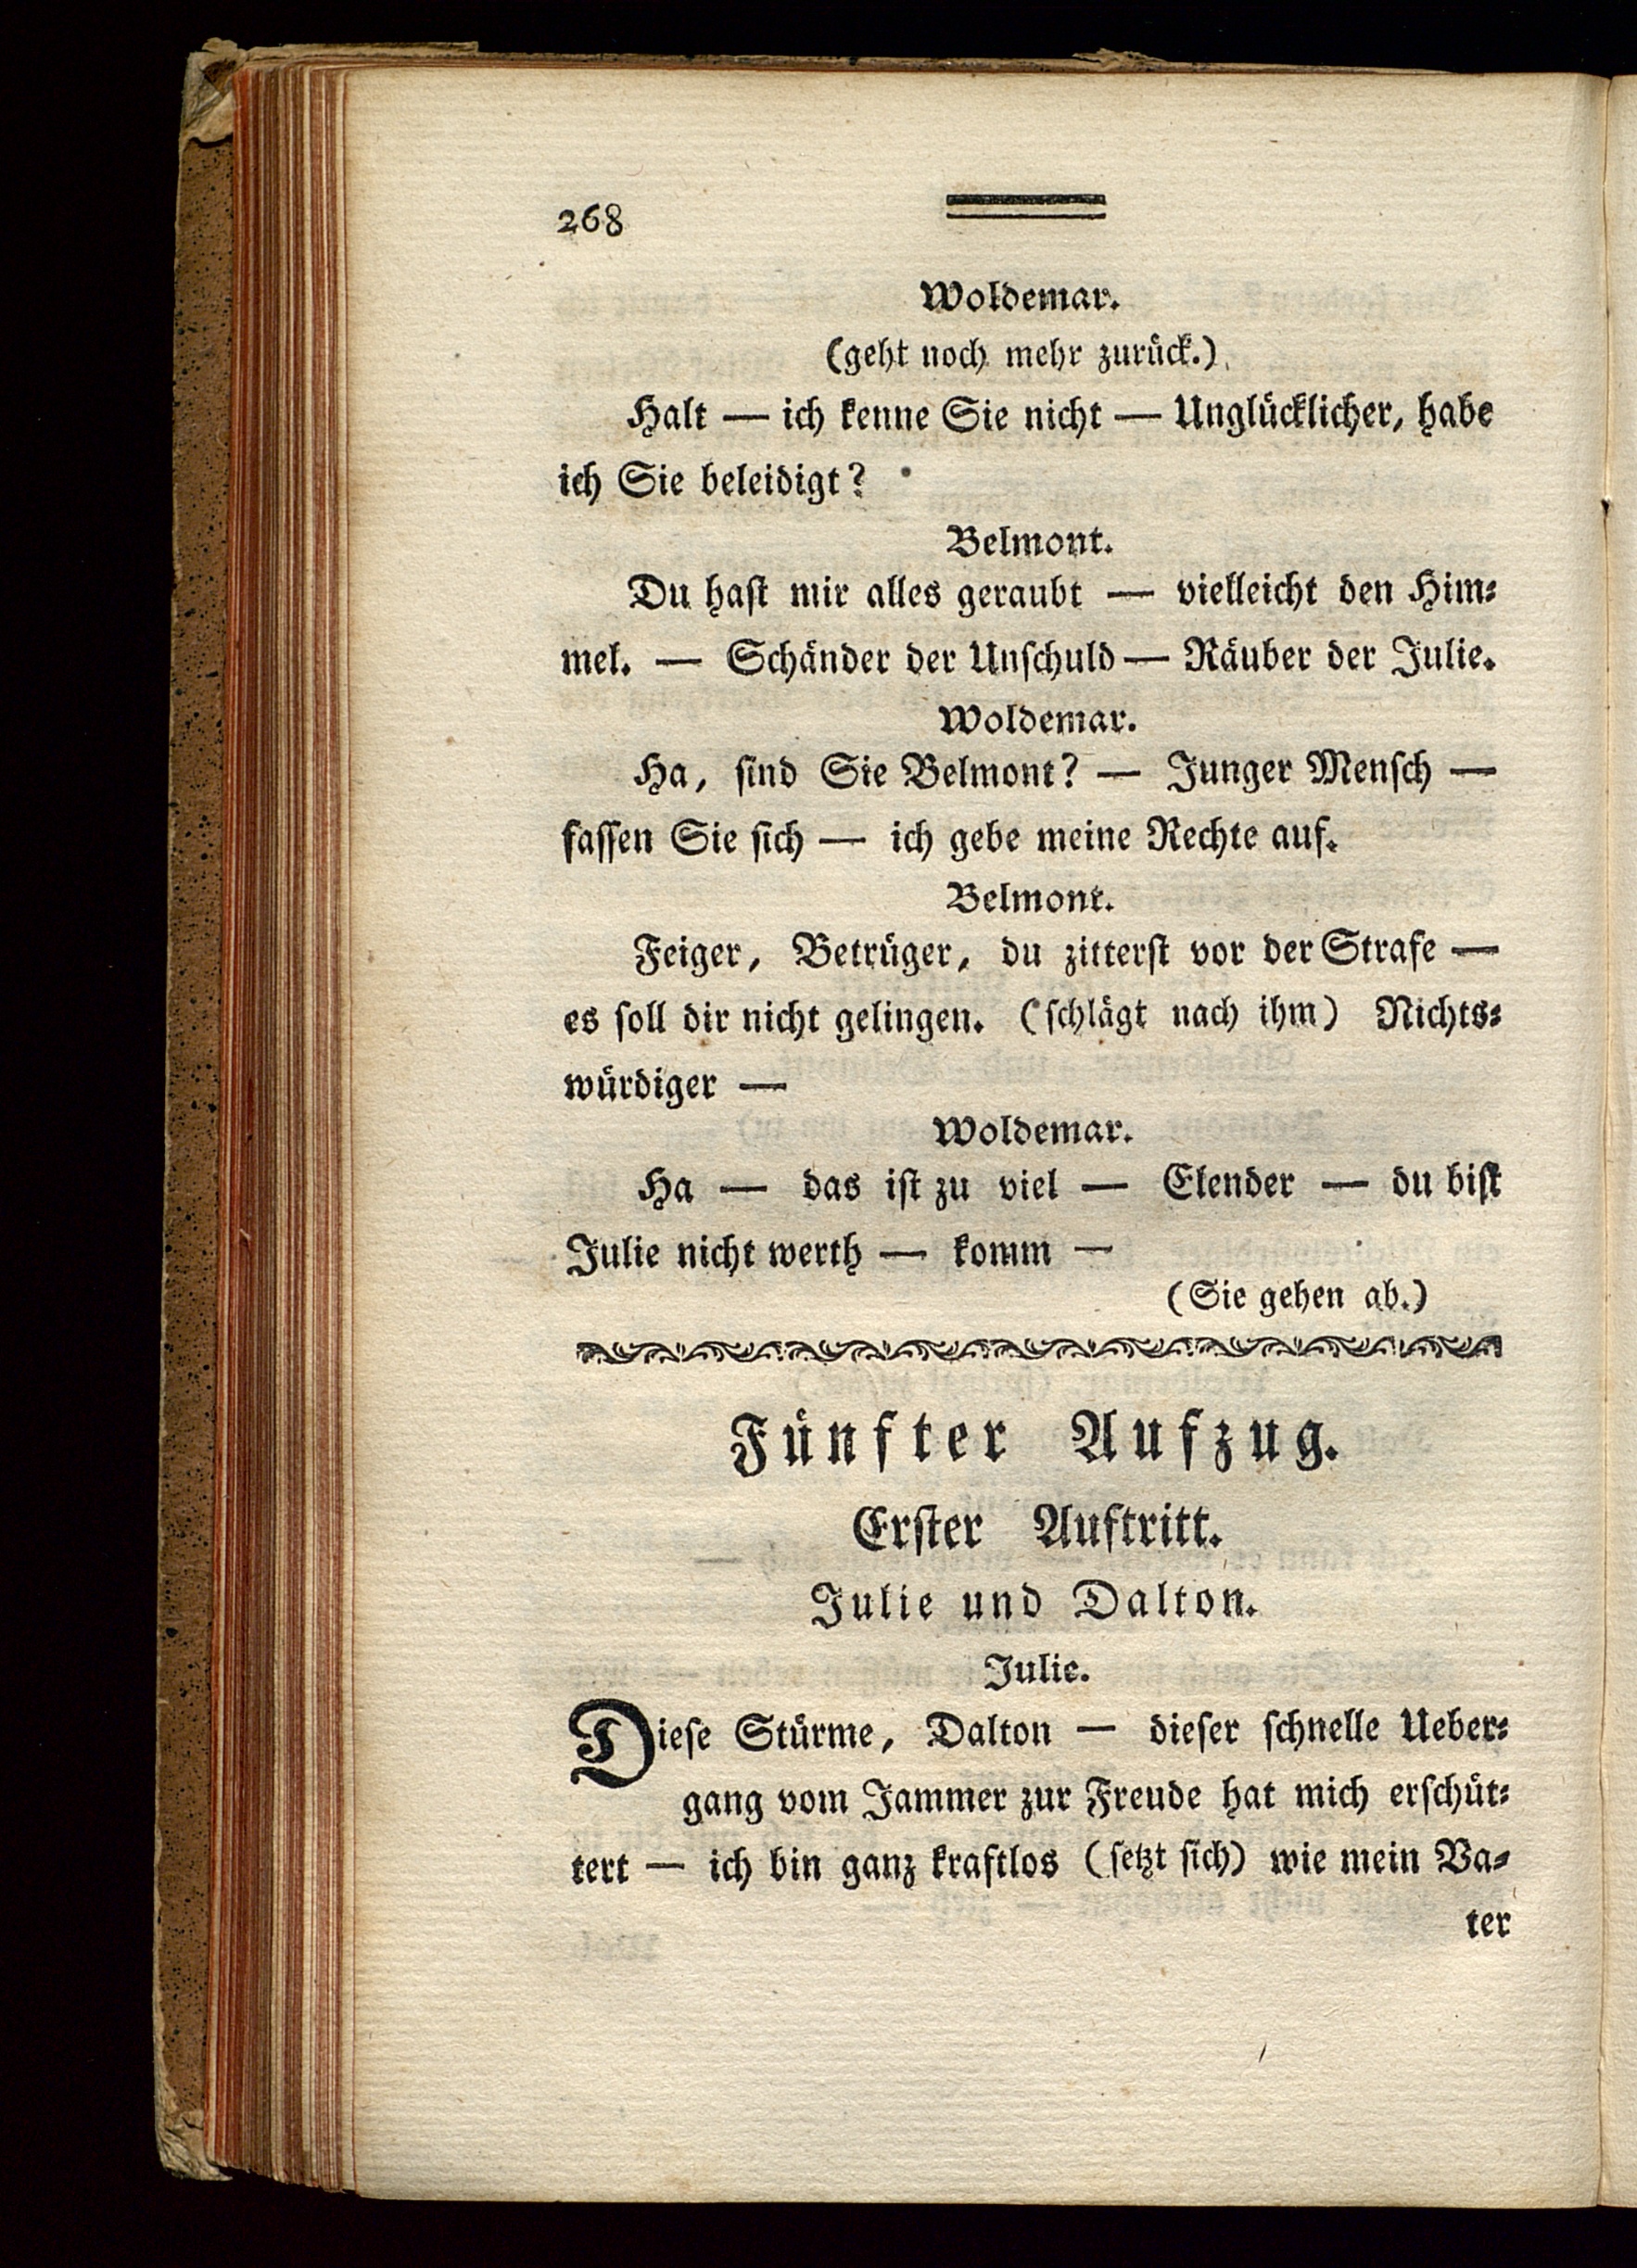 268
Woldemar.
(geht noch mehr zurück.)
Halt — ich kenne Sie nicht — Unglücklicher, habe
ich Sie beleidigt?
Belmont.
Du haſt mir alles geraubt — vielleicht den Him⸗
mel. — Schänder der Unſchuld — Räuber der Julie.
Woldemar.
Ha, ſind Sie Belmont? — Junger Menſch —
faſſen Sie ſich — ich gebe meine Rechte auf.
Belmont.
Feiger, Betrüger, du zitterſt vor der Strafe —
es ſoll dir nicht gelingen. (ſchlägt nach ihm) Nichts⸗
würdiger —
Woldemar.
Ha — das iſt zu viel — Elender — du biſt
Julie nicht werth — komm —
(Sie gehen ab.)
Fünfter Aufzug.
Erſter Auftritt.
Julie und Dalton.
Julie.
Dieſe Stürme, Dalton — dieſer ſchnelle Ueber⸗
gang vom Jammer zur Freude hat mich erſchüt⸗
tert — ich bin ganz kraftlos (ſetzt ſich) wie mein Va⸗
ter